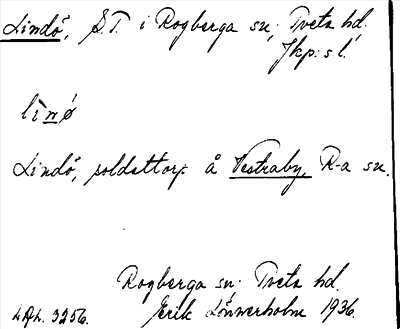 Lindö, S.T. i Rogberga sn; Tveta hd.
Jkp:s l.
lìnǿ
Lindö, soldattorp å Vestraby, R-a sn.
Rogberga sn. Tveta hd.
Erik Lönnerholm 1936.